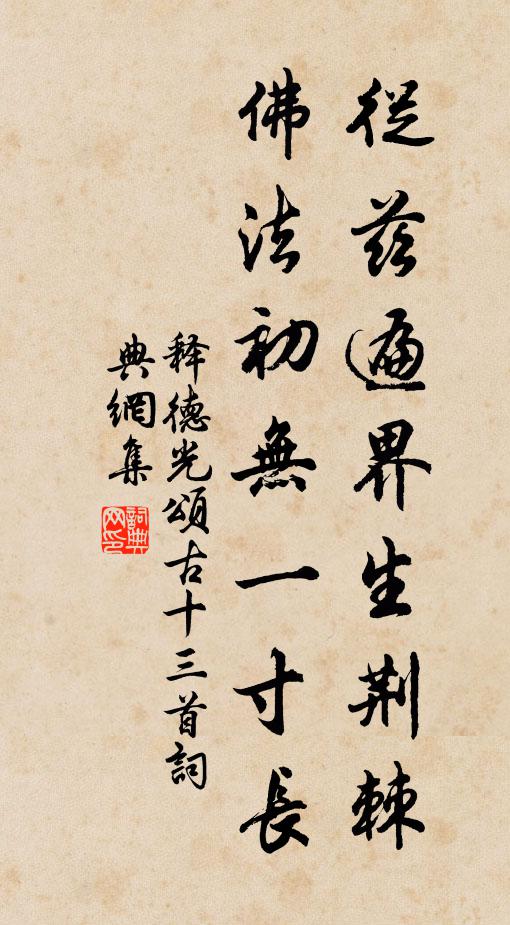 從茲遍界生荆棘
佛法初無一寸長
释德光頌古十三首詞
典網集
詞典
网印